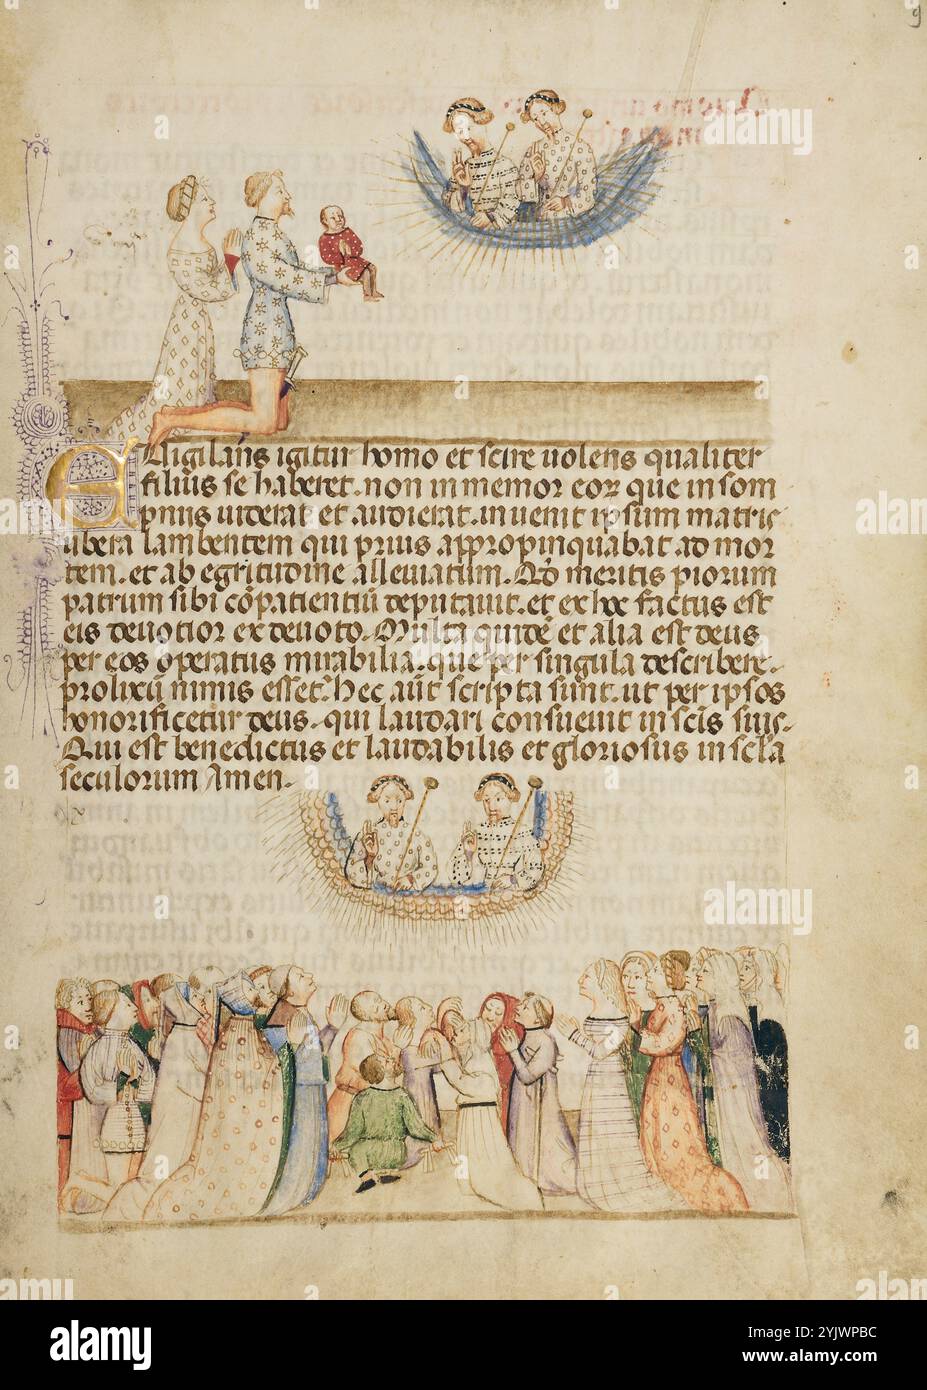 9
Evigilans igitur homo et scire uolens qualiter
filius se haberet. non inmemor eoɼ que in som
pniis uiderat et audierat. inuenit ipsum matris
ubera lambentem qui prius appropinquabat ad mor
tem. et ab egritudine alleuiatum. Qd meritis piorum
patrum sibi cōpatientiū deputauit. et ex hoc factus est
eis deuotior ex deuoto. Multa quidē et alia est deus
per eos operatus mirabilia. que per singula describere
prolixū nimis esset. hec aūt scripta sunt. ut per ipsos
honorificetur deus. qui laudari consueuit in scīs suis.
Qui est benedictus et laudabilis et gloriosus in scła
seculorum Amen.
alamy
Image ID: 2YJWPBC
www.alamy.com